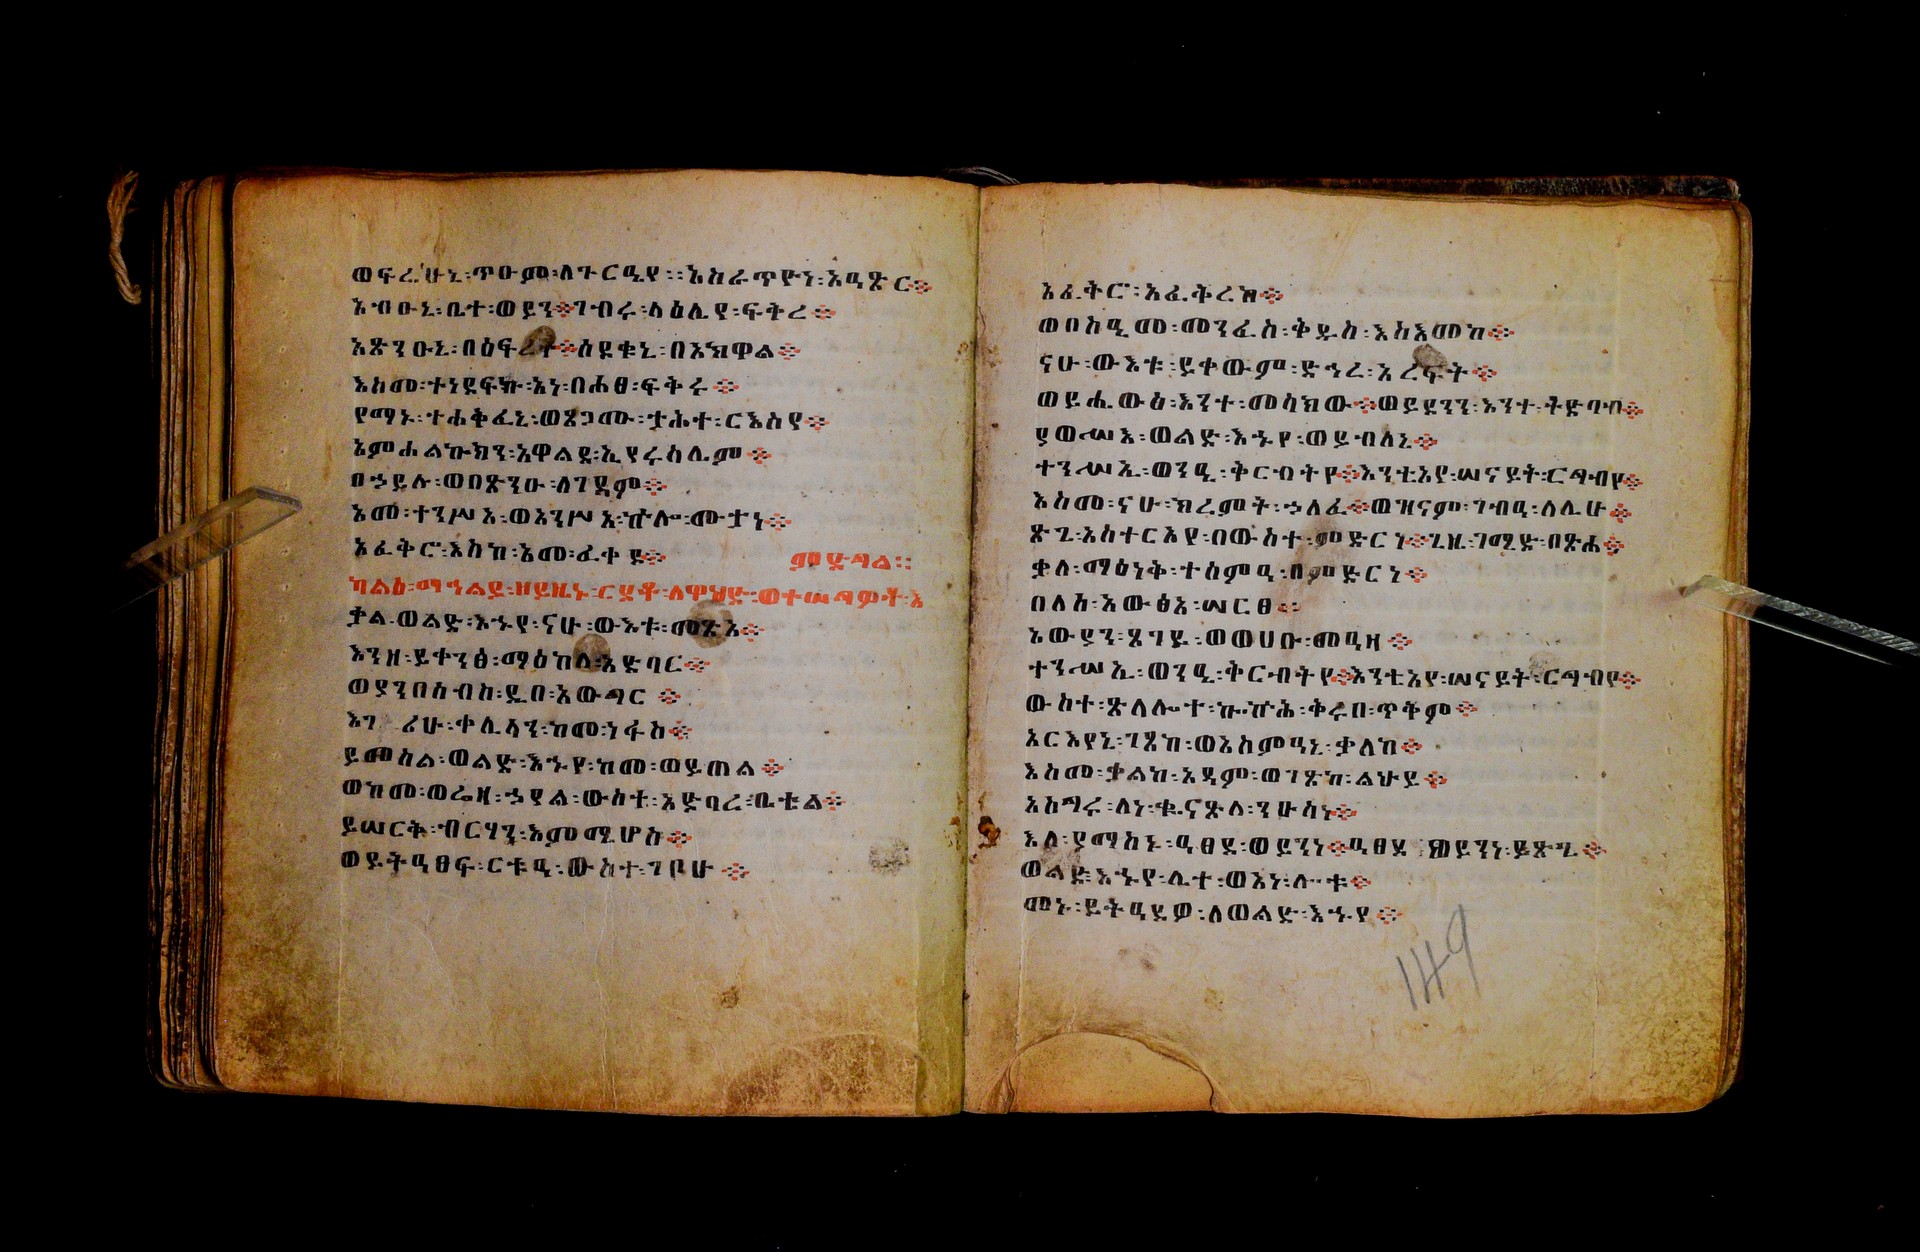 ወፍሬሁኒ፡ጥዑም፡ለጕርዔየ፡፡አስራጥዮነ፡አዒጽር፨
እብዑኒ፡ቤተ፡ወይን፨ገብሩ፡ላዕሌየ፡ፍቅረ፨
አጽንዑኒ፡በዕፍረት፨ሰደቁኒ፡በአኽዋል፨
እስመ፡ተነድፍኩ፡አነ፡በሐፀ፡ፍቅሩ፨
የማኑ፡ተሐቅፈኒ፡ወፀጋሙ፡ታሕተ፡ርእስየ፨
አምሐልኩክን፡አዋልደ፡ኢየሩሳሌም፨
በኃይሉ፡ወበጽንዑ፡ለገዳም፨
እመ፡ተንሥአ፡ወአንሥአ፡ኵሎ፡ሙታነ፨
አፈቅሮ፡እስከ፡አመ፡ፈቀደ፨ ምድራል፡፡
ካልዕ፡ማኅልይ፡ዘይዜኑ፡ርደቶ፡ለዋህድ፡ወተሠግዎቶ፡እ
ቃል፡ወልድ፡እኁየ፡ናሁ፡ውእቱ፡መጽአ፨
እንዘ፡ይቀንፅ፡ማዕከለ፡አድባር፨
ወያንበሰብስ፡ዲበ፡አውግር፨
ይመስል፡ወልድ፡እኁየ፡ከመ፡ወይጠል፨
ወከመ፡ወሬዛ፡ኃየል፡ውስተ፡አድባረ፡ቤቴል፨
ይሠርቅ፡ብርሃን፡እመሚሆስ፨
ወይትዓፀፍ፡ርቱዓ፡ውስተ፡ገቦሁ፨
አፈቅሮ፡አፈቅረኒ፨
ወበስዒመ፡መንፈስ፡ቅዱስ፡እስእመከ፨
ናሁ፡ውእቱ፡ይቀውም፡ድኅረ፡አረፍት፨
ወይሔውፅ፡እንተ፡መሳክው፨ወይደንን፡እንተ፡ትድባብ፨
ያወሥእ፡ወልድ፡እኁየ፡ወይብለኒ፨
ተንሥኢ፡ወንዒ፡ቅርብትየ፨እንቲአየ፡ሠናይት፡ርግብየ፨
እስመ፡ናሁ፡ክረምት፡ኃለፈ፨ወዝናም፡ገብዓ፡ለሊሁ፨
ጽጌ፡አስተርአየ፡በውስተ፡ምድርነ፨ጊዜ፡ገሚድ፡በጽሐ፨
ቃለ፡ማዕነቅ፡ተሰምዓ፡በምድርነ፨
በለስ፡አውፅአ፡ሠርፀ፨
አውያን፡ጸገዩ፡ወወሀቡ፡መዓዛ፨
ተንሥኢ፡ወንዒ፡ቅርብትየ፨እንቲአየ፡ሠናይት፡ርግብየ፨
ውስተ፡ጽላሎተ፡ኰኵሕ፡ቅሩበ፡ጥቅም፨
አርእየኒ፡ገጸከ፡ወአስምዓኒ፡ቃለከ፨
እስመ፡ቃልከ፡አዳም፡ወገጽከ፡ልህይ፨
አስግሩ፡ለነ፡ቈናጽለ፡ንሁሳነ፨
እለ፡ያማስኑ፡ዓፀደ፡ወይንነ፨ዓፀደ፡ወይንነ፡ይጽጊ፨
ወልድ፡እኁየ፡ሊተ፡ወአነ፡ሎቱ፨
መኑ፡ይትዓደዎ፡ለወልድ፡እኁየ፨
149